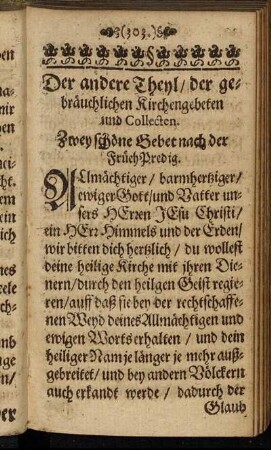 (303.)
Der andere Theyl / der ge-
bräuchlichen Kirchengebeten
und Collecten.
Zwey schöne Gebet nach der
Früch Predig.
ALmächtiger / barmhertziger /
ewiger Gott / und Vatter un-
sers HErren JEsu Christi /
ein HErr Himmels und der Erden /
wir bitten dich hertzlich / du wollest
deine heilige Kirche mit jhren Die-
nern / durch den heilgen Geist regie-
ren / auff daß sie bey der rechtschaffe-
nen Weyd deines Allmächtigen und
ewigen Worts erhalten / und dein
heiliger Nam je länger je mehr auß-
gebreitet / und bey andern Völckern
auch erkandt werde / dadurch der
Glaub